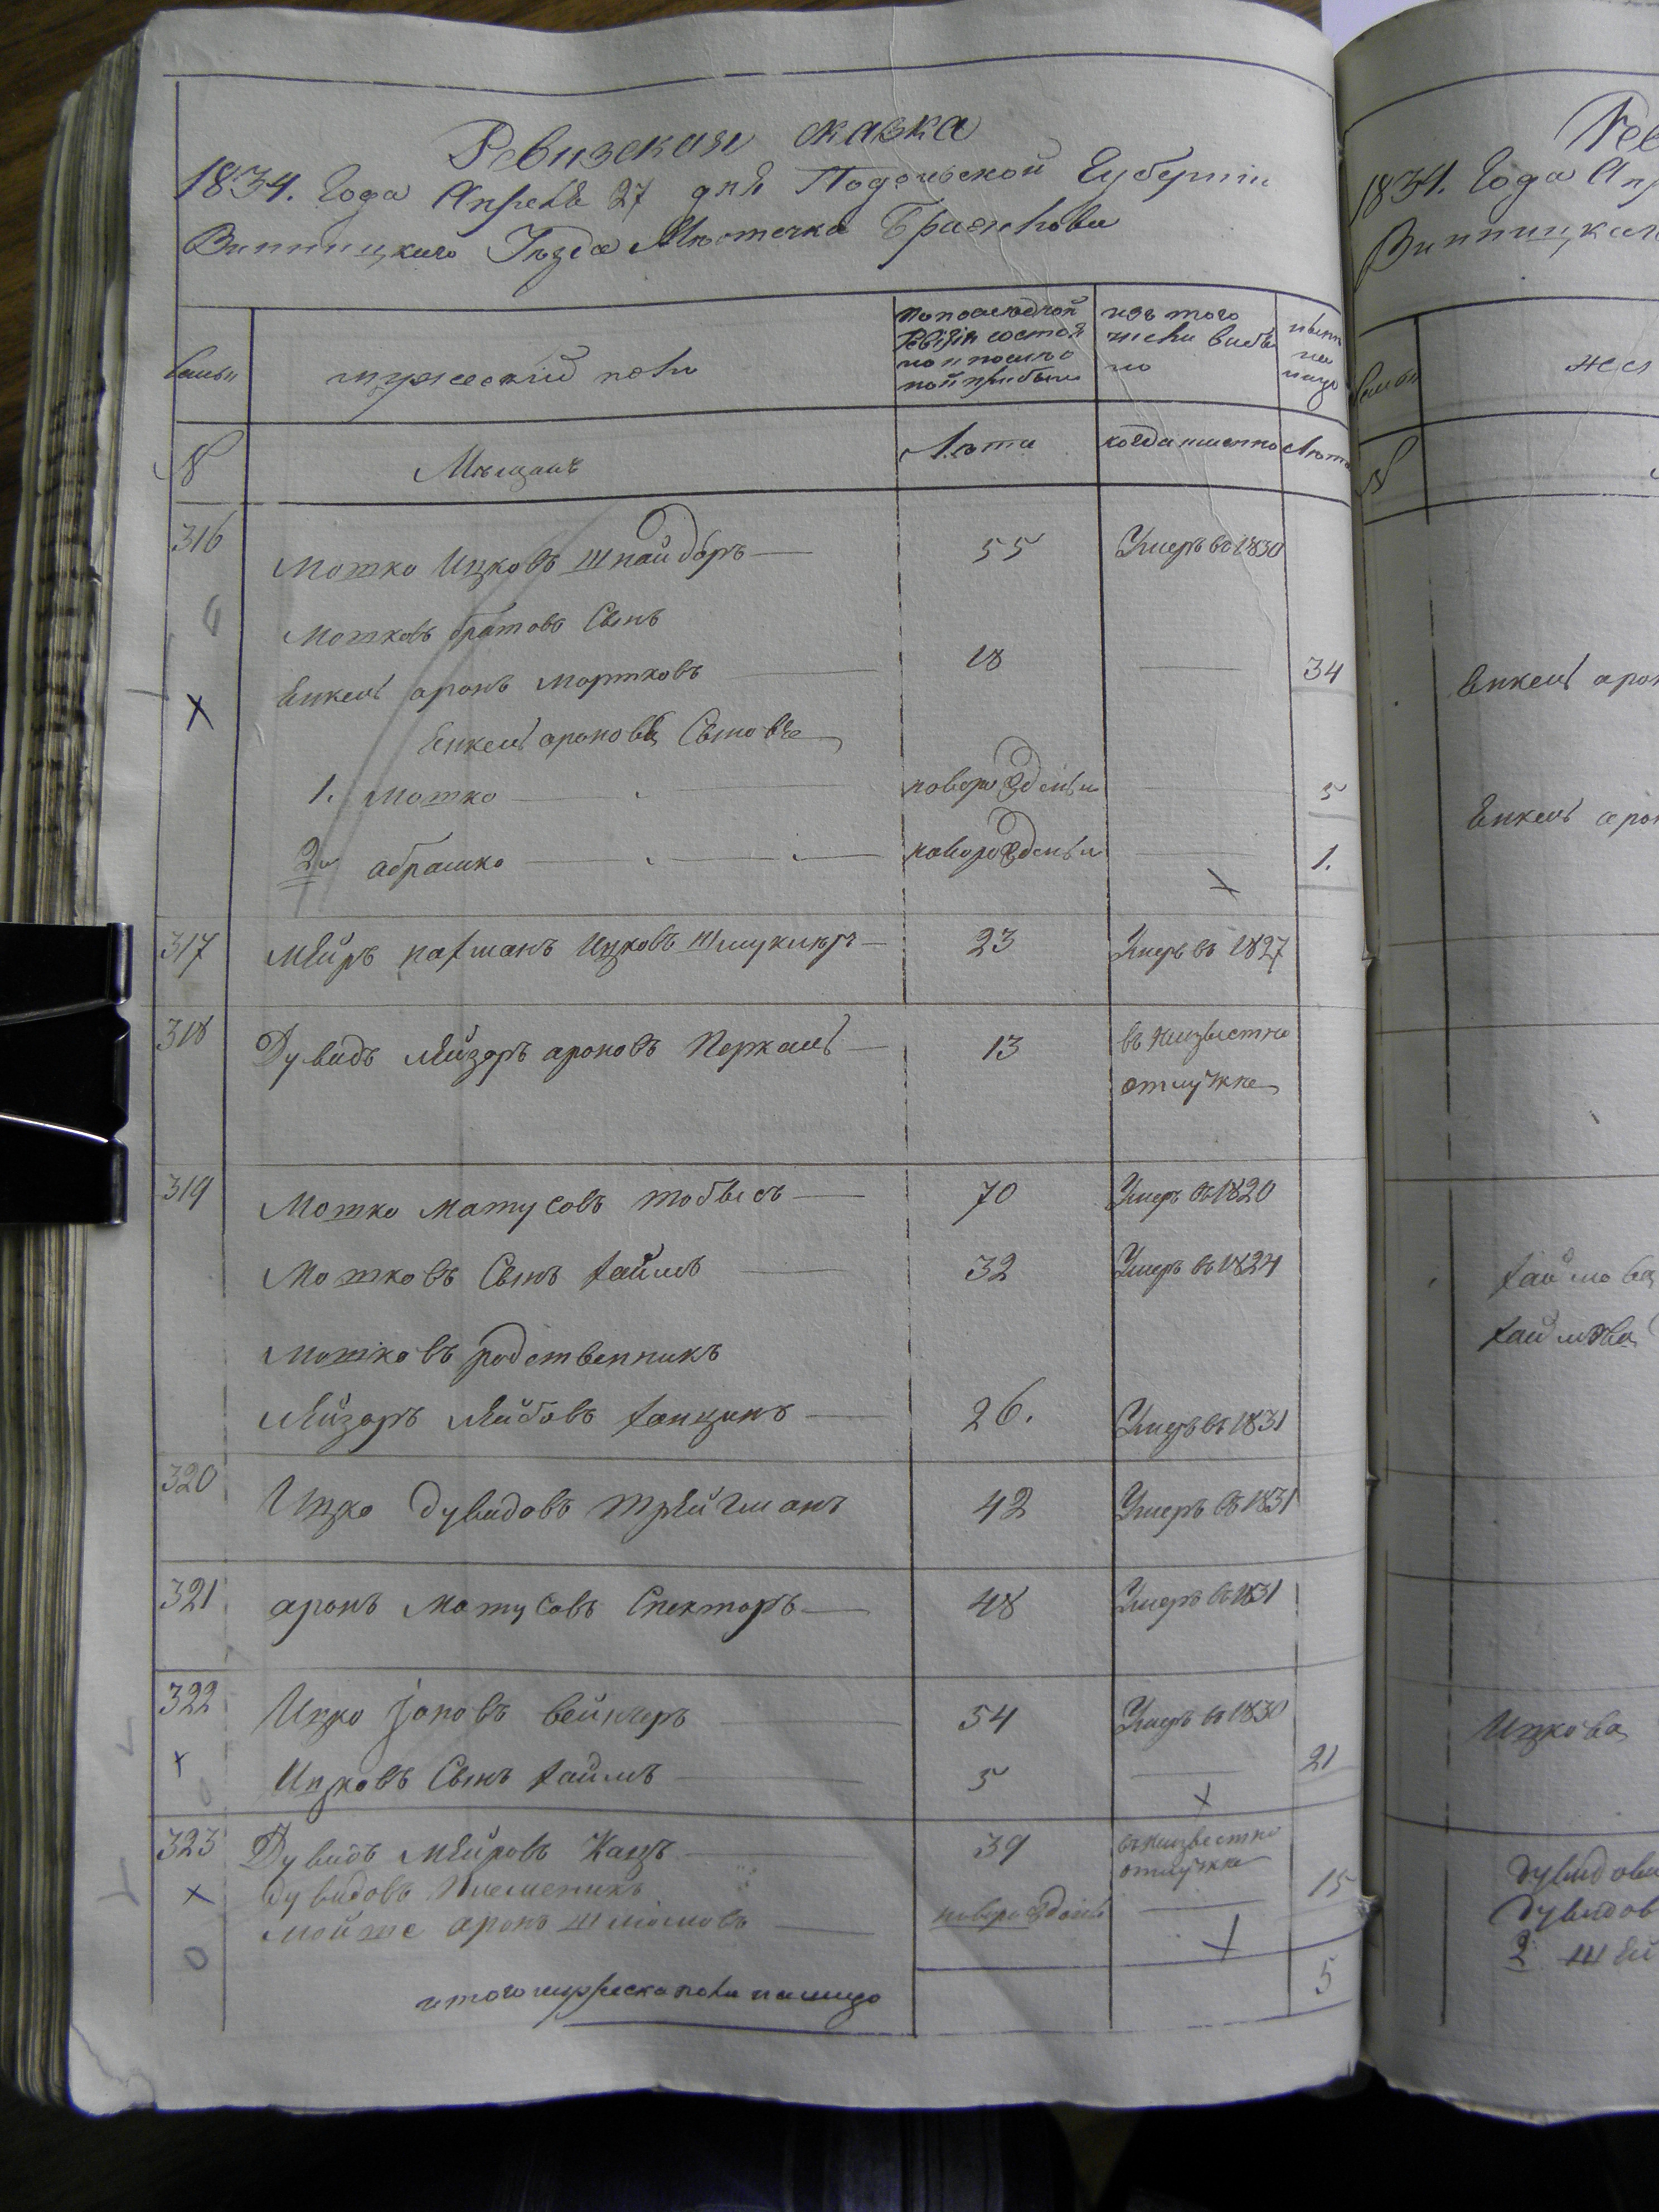 Ревизская сказка
1834. Года Апреля 27 дня Подольской Губернии
Винницкаго Уезда Местечка Браилова
семьи
мужеский полъ
по последной ревизiи состояло и после оной прибыло
изъ того числа выбыло
ныне на лицо
№
Мещанъ
Лета
когда именно
Лета
316
Мошко Ицковъ Шнайдеръ
55
Умеръ въ 1830
Мошковъ братовъ Сынъ
Енкель аронъ мортковъ
18
34
Енкель ароновы Сыновье
1. Мошко
новорожденъи
5
2й абрашко
новорожденъи
1.
317
Мейръ нахманъ Ицковъ
23
Умеръ въ 1827
318
Дувидъ лейзоръ ароновъ Перкаль
13
въ неизвестно
отлучке
319
Мошко матусовъ товбисъ
70
Умеръ въ 1820
Мошковъ Сынъ хаимъ
32
Умеръ въ 1824
мошковъ родственникъ
лейзоръ лейбовъ
26.
Умеръ въ 1831
320
Ицко дувидовъ трейгманъ
42
Умеръ въ 1831
321
аронъ матусовъ Спекторъ
48
Умеръ въ 1831
322
Ицко вейнеръ
54
Умеръ въ 1830
Ицковъ Сынъ хаимъ
5
21
323
Дувидъ мейровъ Кацъ
39
въ неизвестно
отлучке
дувидовъ Племеникъ
мойше аронъ шлиомовъ
новорожденъ
15
итого мужеска пола налицо
5
Рев
1834. Года Апр
Винницкаго
семьи
жен
№
Енкель арон
Енкель арон
хаимова
хаимова
Ицкова
дувидова
дувидов
2 шей